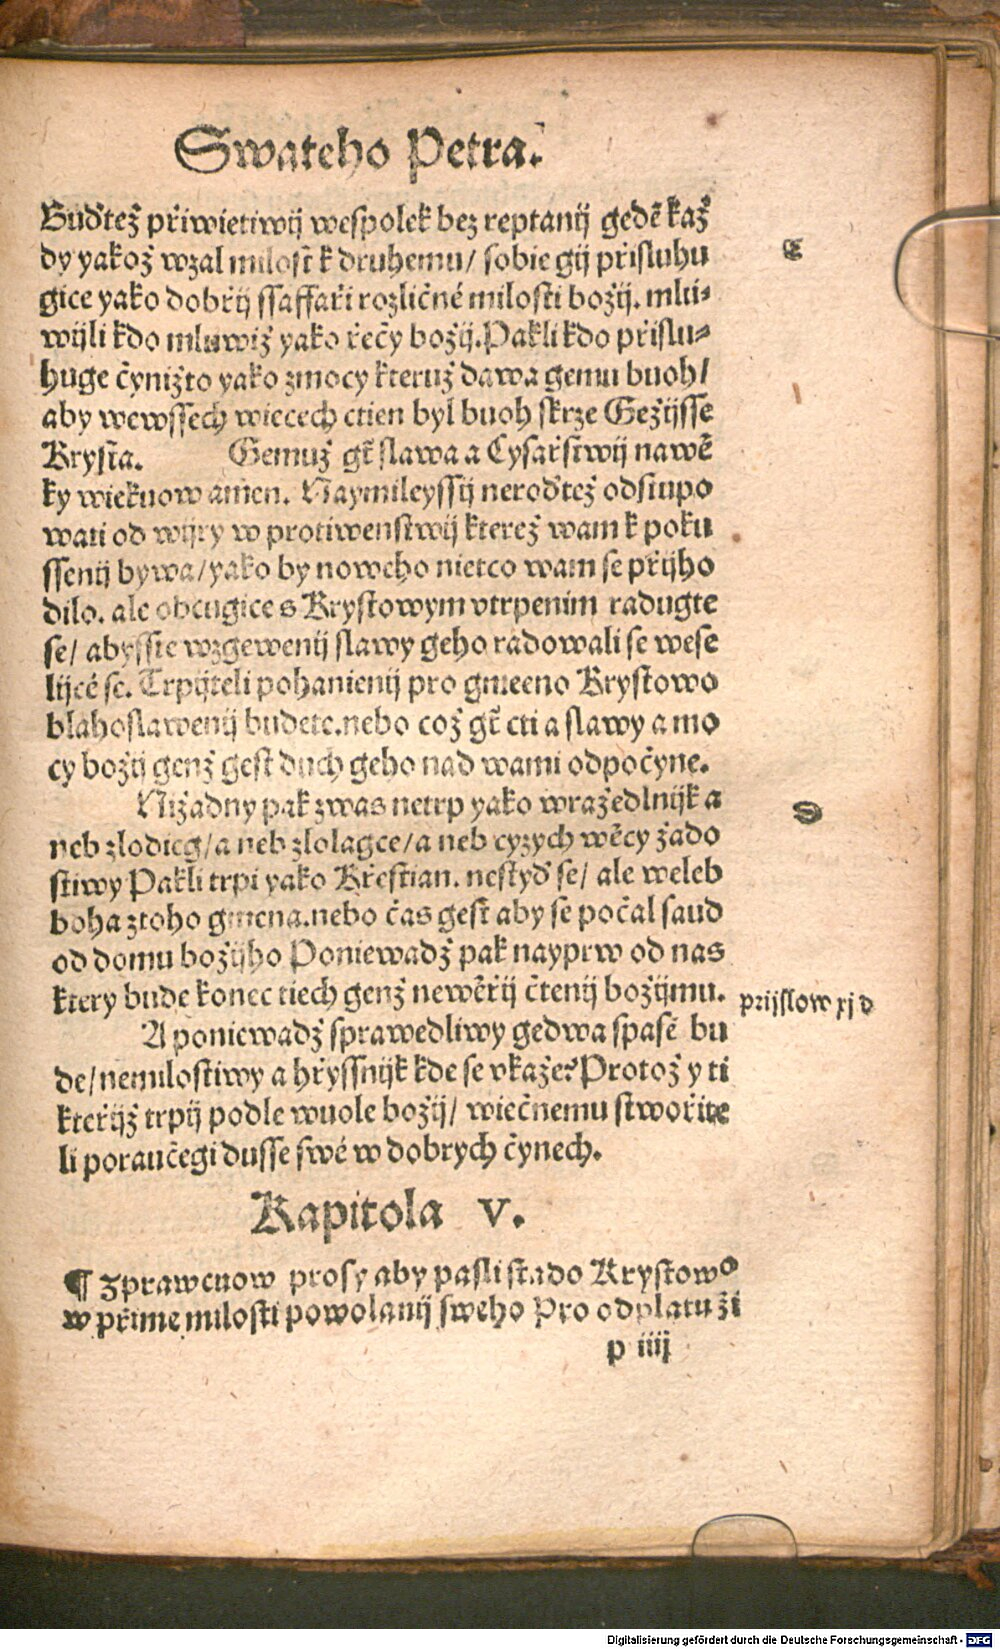 Swateho Petra.
Buďtež přiwietiwij wespolek bez reptanij gedē kaž
dy yakož wzal milost k druhemu/ sobie gij přisluhu
gice yako dobřij ssaffaři rozličné milosti božij. mlu⸗
wijli kdo mluwiž yako řečy božij. Pakli kdo přislu⸗
huge čynižto yako zmocy kteruž dawa gemu buoh/
aby wewssech wiecech ctien byl buoh skrze Gežijsse
Krysta. Gemuž gt̃ slawa a Cysařstwij nawē
ky wiekuow amen. Naymileyssij neroďtež odstupo
wati od wijry w protiwenstwij kterež wam k poku
ssenij bywa/ yako by noweho nietco wam se přijho
dilo. ale obcugice s Krystowym vtrpenim radugte
se/ abyssie wzgewenij slawy geho radowali se wese
lijcé se. Trpijteli pohanienij pro gmeeno Krystowo
blahoslawenij budete. nebo což gt̃ cti a slawy a mo
cy božij genž gest duch geho nad wami odpočyne.
Nižadny pak zwas netrp yako wražedlnijk a
neb zlodieg/ a neb zlolagce/ a neb cyzych wēcy žado
stiwy Pakli trpi yako Křestian. nestyď se/ ale weleb
boha ztoho gmena. nebo čas gest aby se počal saud
od domu božijho Poniewadž pak nayprw od nas
ktery bude konec tiech genž newěřij čtenij božijmu.
prijslow xj d
A poniewadž sprawedliwy gedwa spasē bu
de/ nemilostiwy a hřyssnijk kde se vkaže? Protož y ti
kteřijž trpij podle wuole božij/ wiečnemu stwořite
li poraučegi dusse swé w dobrych čynech.
Kapitola V.
¶ Zprawcuow prosy aby pasli stado Krystowo
w přime milosti powolanij sweho Pro odplatu ži
p iiij
E
D
Digitalisierung gefördert durch die Deutsche Forschungsgemeinschaft - DFG